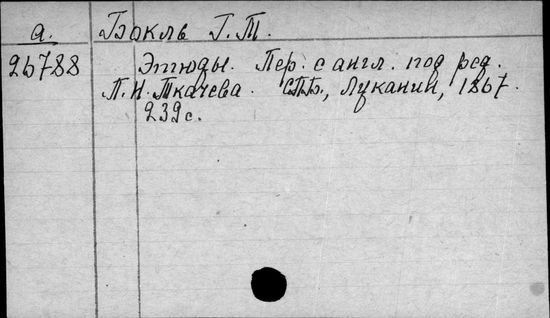 а. Бокль Г.Т.
26788 Этюды. Пер. с англ. под ред.
П.Н. Ткачева. СПБ., Луканин, 1867.
239 с.